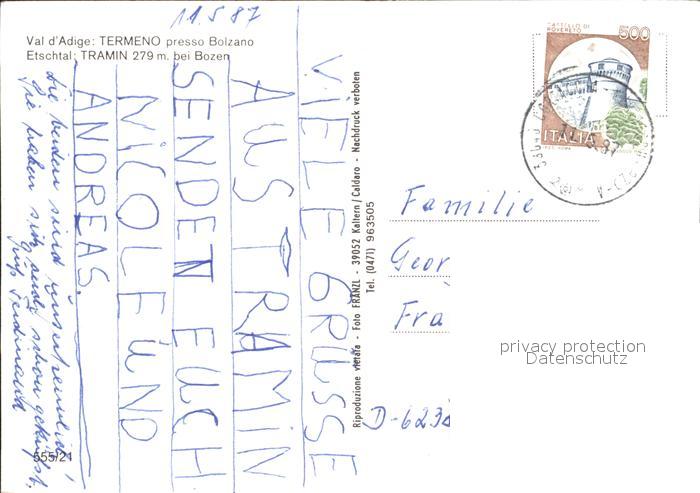 11.5.87
Val d'Adige: TERMENO presso Bolzano
Etschtal: TRAMIN 279 m. bei Bozen
VIELE GRÜSSE
AUS TRAMIN
SENDEN EUCH
NICOLE UND
ANDREAS.
Die beiden sind unzertrennlich!
Sie haben sich auch schon geküsst.
Gruß Ferdinand
555/21
Riproduzione vietata - Foto FRANZL - 39052 Kaltern / Caldaro - Nachdruck verboten
Tel. (0471) 963505
CASTELLO DI
ROVERETO
500
ITALIA
Familie
Geor
Fra
D-623
privacy protection
Datenschutz